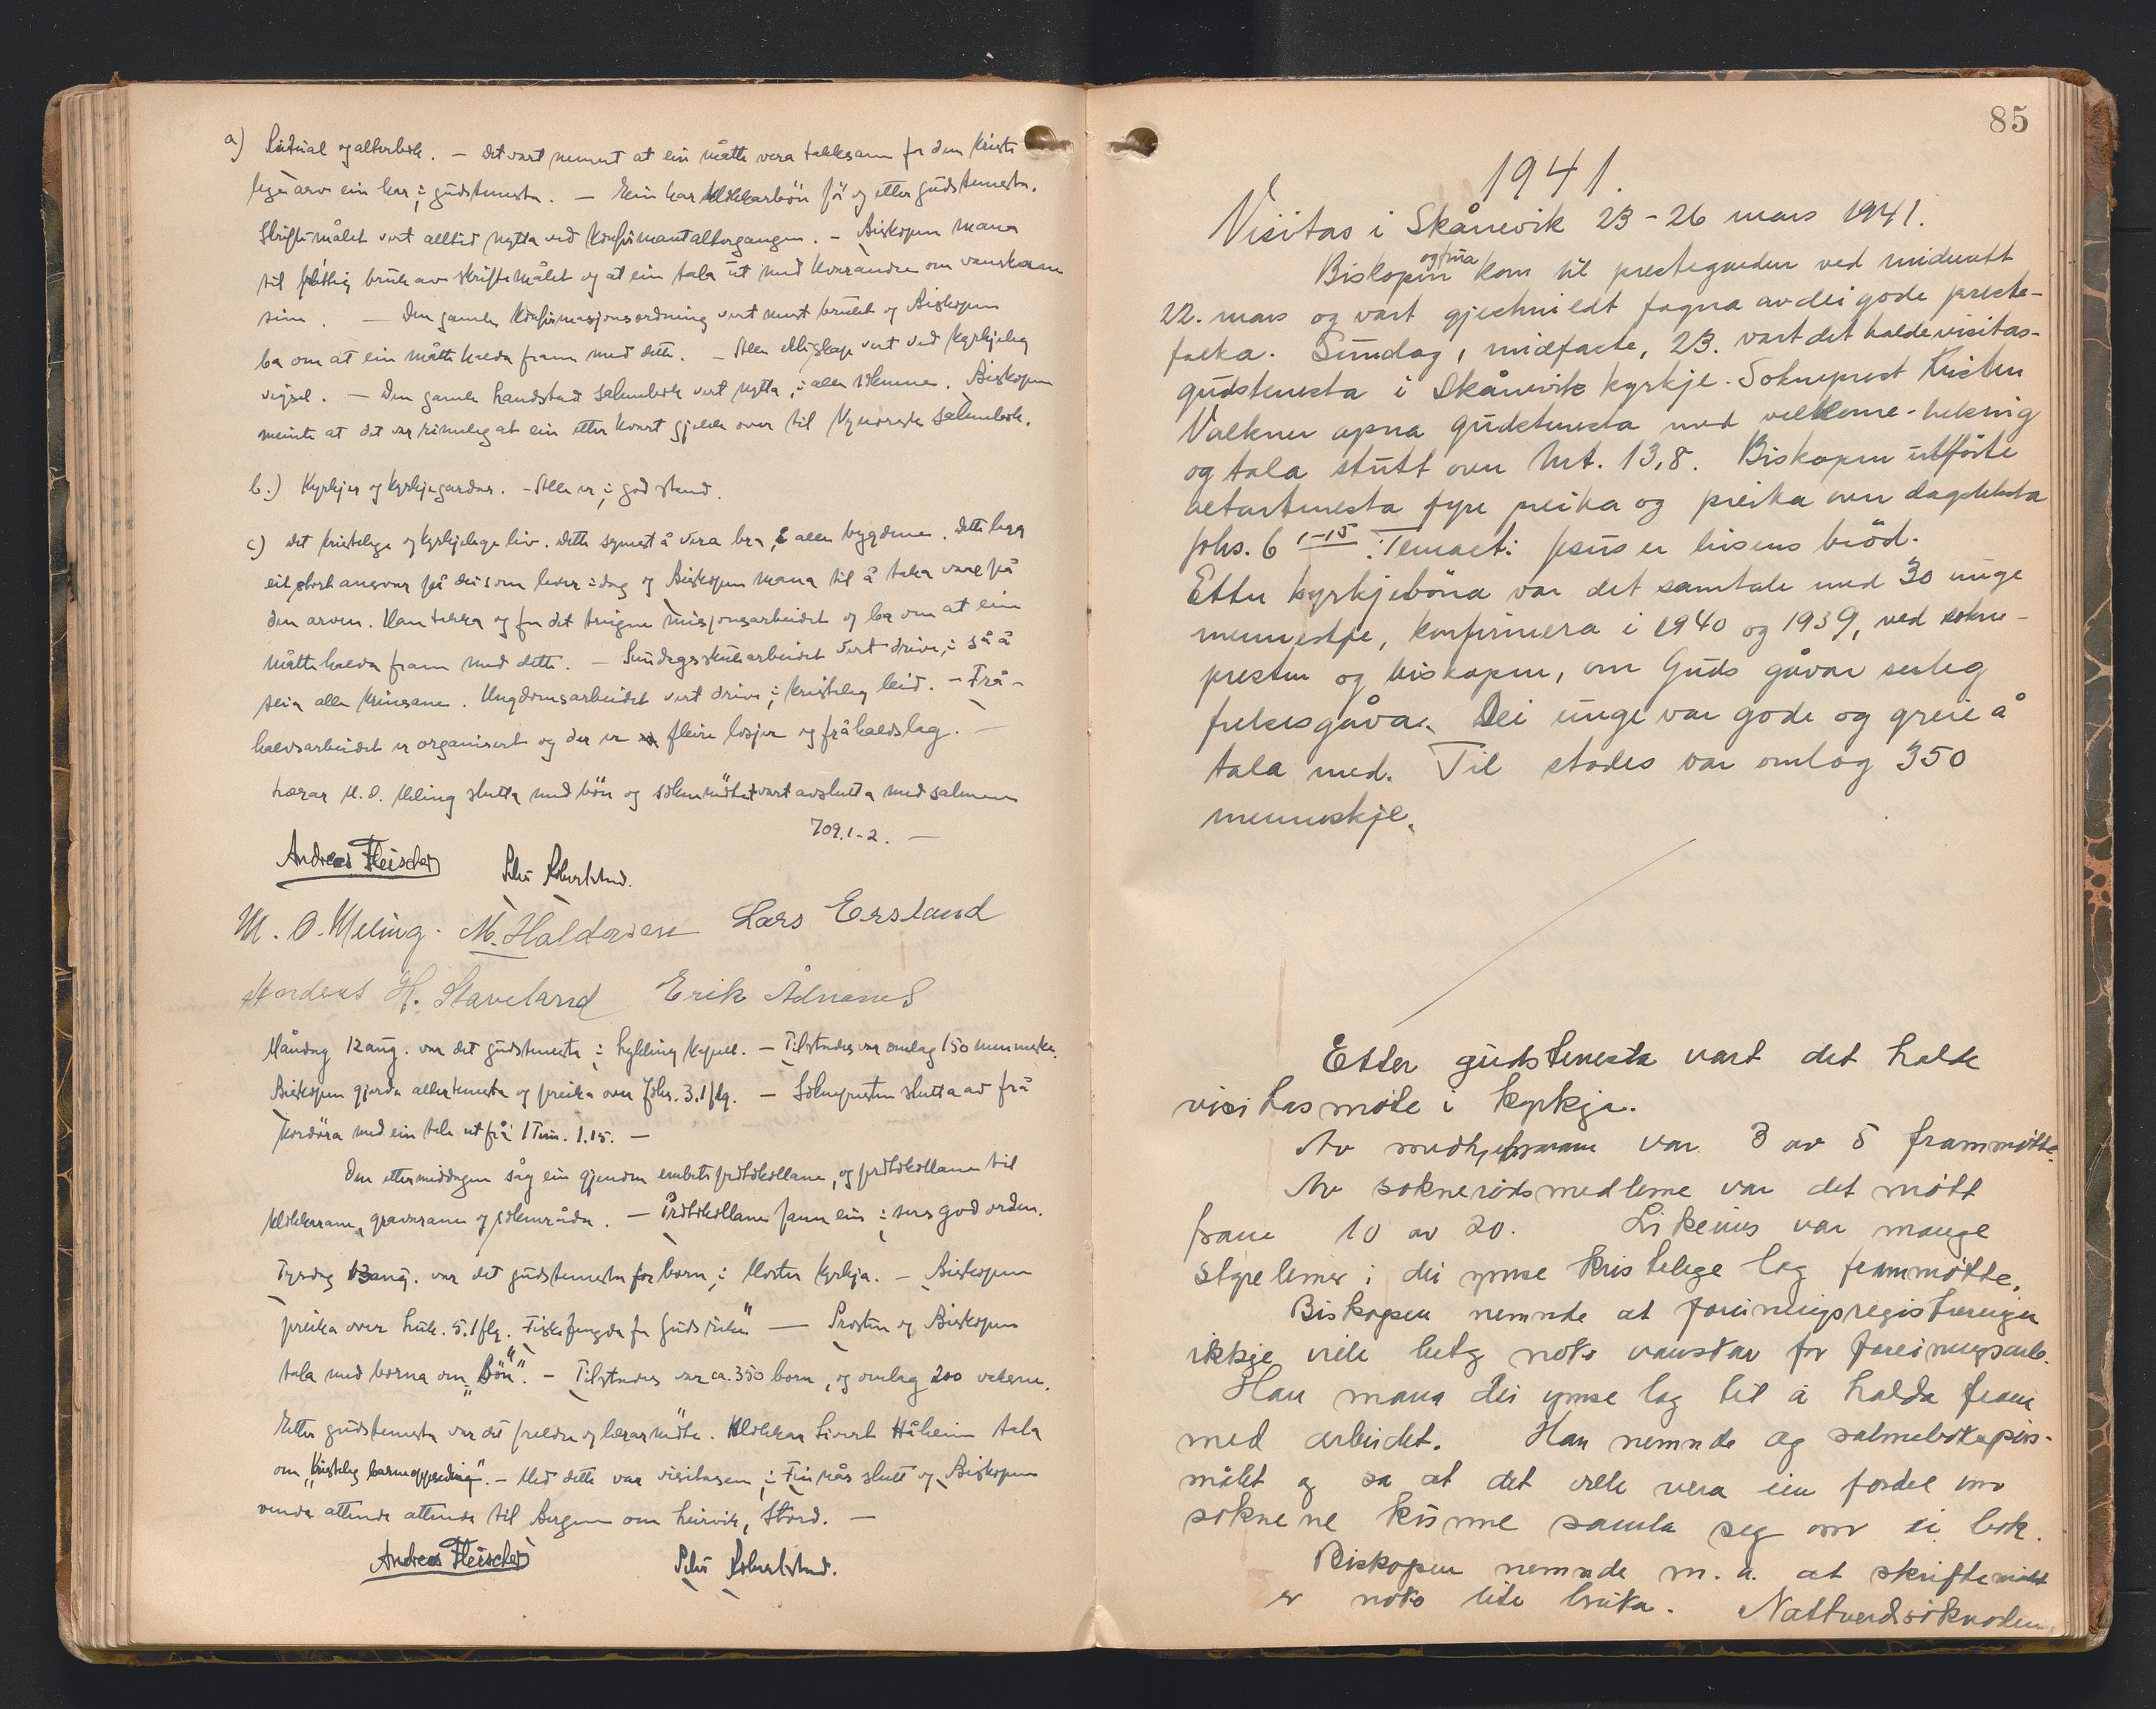 a) Ritual og alterbok. – Det vart nemnt at ein måtte vera takksam for den kriste-
lege arv ein har i gudstenesta. – Ein har klokkarbön för og etter gudstenesta.
Skriftemålet vert alltid nytta ved konfirmantaltergangen. – Biskopen mana
til flittig bruk av skriftemålet og at ein tala ut med kvarandre om vanskane
sine. – Den gamle konfirmasjonsordning vert mest brukt og Biskopen
ba om at ein måtte halda fram med dette. – Alle ekteskap vert ved kyrkjeleg
vigsel. – Den gamle Landstad salmebok vert nytta i alle soknene. Biskopen
meinte at det var rimeleg at ein etter kvart gjekk over til Nynorsk salmebok.
b.) Kyrkjer og kyrkjegardar. – Alle er i god stand.
c) Det kristelege og kyrkjelege liv. Dette synest å vera bra i alle bygdene. Dette legg
eit stort ansvar på dei som lever i dag og Biskopen mana til å taka vare på
den arven. Han takka og for det trugne misjonsarbeidet og ba om at ein
måtte halda fram med dette. – Sundagsskularbeidet vert drive i så å
seia alle krinsane. Ungdomsarbeidet vert drive i kristeleg leid. – Frå-
haldsarbeidet er organisert og der er fleire losjer og fråhaldslag. –
Lærar M. O. Meling slutta med bön og soknemötet vart avslutta med salmen
709.1-2. –
Andreas Fleischer
M. O. Meling. M. Haldorsen Lars Ersland
Anders H. Staveland Erik Ådnanes
Måndag 12 aug. var det gudstenesta i Lykling kapell. – Tilstades var omlag 150 menneske.
Biskopen gjorde altertenesta og preika over Johs. 3.1 flg. – Soknepresten slutta av frå
kordöra med ein tale ut frå 1 Tim. 1.15. –
Den ettermiddagen såg ein gjenom embetsprotokollane, og protokollane til
klokkarane, gravarane og sokneråda. – Protokollane fann ein i sers god orden.
Tysdag 13 aug. var det gudstenesta for born i Moster kyrkja. – Biskopen
preika over Luk. 5.1 flg. "Fiskefengda for Guds rike" – Prosten og Biskopen
tala med borna om "Bön". – Tilstades var ca. 350 born, og omlag 200 vaksne.
Etter gudstenesta var det foreldre og lærarmöte. Klokkar Sivert Håheim tala
om "Kristeleg barneoppseding". – Med dette var visitasen i Finnås slutt og Biskopen
vende attende attende til Bergen om Leirvik, Stord. –
Andreas Fleischer
85
1941.
Visitas i Skånevik 23-26 mars 1941.
og frua
Biskopen kom til prestegarden ved midnatt
22. mars og vart gjestmildt fagna av dei gode preste-
folka. Sundag, midfaste, 23. vart det halde visitas-
gudstenesta i Skånevik kyrkje. Sokneprest Kristen
Valkner opna gudstenesta med velkome-helsing
og tala stutt over Mt. 13,8. Biskopen utförte
altartenesta fyre preika og preika over dagteksta
Johs. 6 1-15. Temaet: Jesus er livsens bröd.
Etter kyrkjeböna var det samtale med 30 unge
menneskje, konfirmera i 1940 og 1939, ved sokne-
presten og biskopen, om Guds gåvor serleg
frelsesgåva. Dei unge var gode og greie å
tala med. Til stades var omlag 350
menneskje.
Etter gudstenesta vart det halde
visitasmøte i kyrkja.
Av medhjelparane var 3 av 5 frammøtte.
Av soknerådsmedleme var det møtt
fram 10 av 20. Likeins var mange
styrelemer i dei ymse kristelege lag frammøtte.
Biskopen nemnde at foreiningsregistreringa
ikkje ville bety noko vanskar for foreiningsarb.
Han mana dei ymse lag til å halda fram
med arbeidet. Han nemnde og salmebokspørs-
målet og sa at det ville vera ein fordel om
soknene kunne samla seg om ei bok.
Biskopen nemnde m. a. at skriftemålet
er noko lite bruka. Nattverdsøknaden